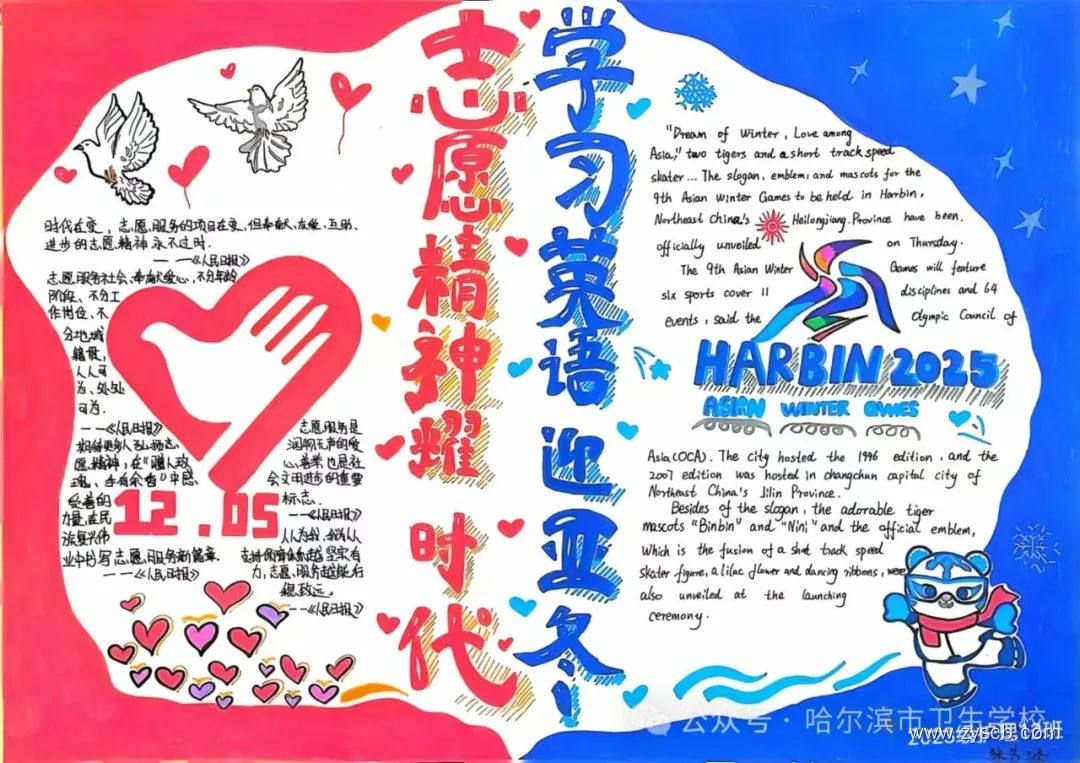 志愿精神耀时代
学习英语迎亚冬!
时代在变,志愿服务的项目在变,但奉献、友爱、互助、
进步的志愿精神永不过时.
——《人民日报》
志愿服务社会、奉献爱心,不分年龄
阶段、不分工
作岗位、不
分地域
籍贯,
人人可
为、处处
可为.
——《人民日报》
期待更多人弘扬志
愿精神,在“赠人玫
瑰、手有余香”中感
受善的
力量,在民
族复兴伟
业中书写志愿服务新篇章.
——《人民日报》
12.05
志愿服务是
润物无声的爱
心善举也是社
会文明进步的重要
标志.
——《人民日报》
人人为我,我为人人
支持保障体系越坚实有
力,志愿服务越能行
稳致远.
——《人民日报》
"Dream of Winter, Love among
Asia," two tigers and a short track speed
skater... The slogan, emblem, and mascots for the
9th Asian Winter Games to be held in Harbin,
Northeast China's Heilongjiang Province have been
officially unveiled on Thursday.
The 9th Asian Winter Games will feature
six sports cover 11 disciplines and 64
events, said the Olympic Council of
HARBIN 2025
ASIAN WINTER GAMES
Asia(OCA). The city hosted the 1996 edition, and the
2007 edition was hosted in changchun capital city of
Northeast China's Jilin Province.
Besides of the slogan, the adorable tiger
mascots "Binbin" and "Nini" and the official emblem,
which is the fusion of a shot track speed
skater figure, a lilac flower and dancing ribbons, were
also unveiled at the launching
ceremony.
公众号·哈尔滨市卫生学校
www.zyscb.com